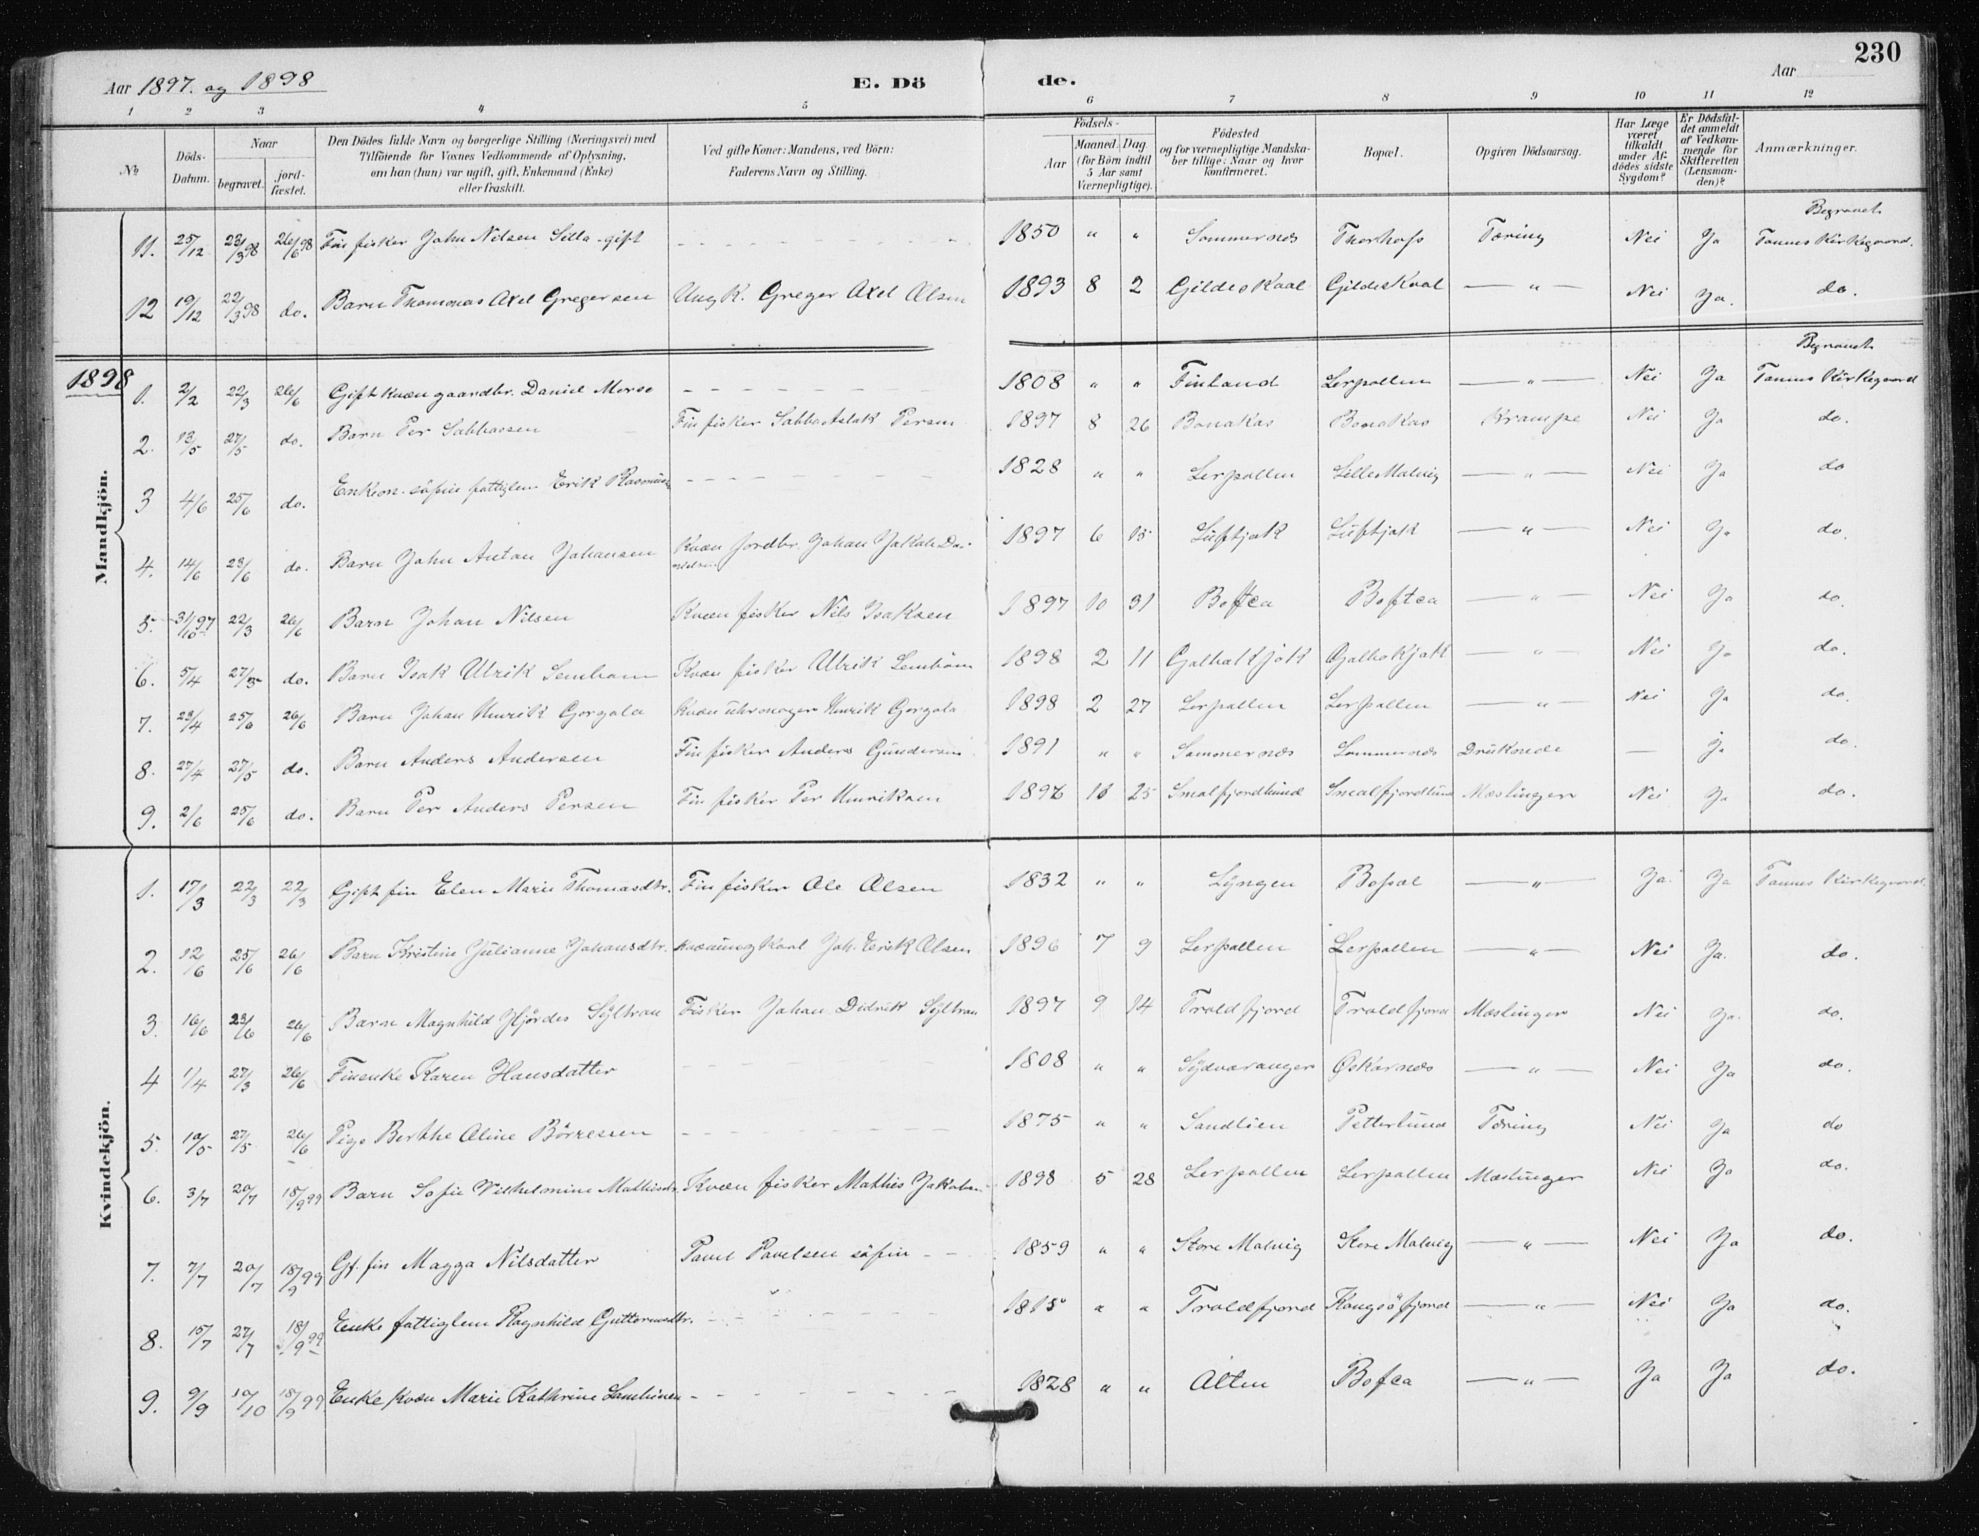 230
Aar 1897. og 1898
E. Dö de.
Aar
1 2 3 4 5 6 7 8 9 10 11 12
No
Döds-Datum.
Naar
begravet. jordfæstet.
Den Dödes fulde Navn og borgerlige Stilling (Næringsvei) med
Tilföiende for Voxnes Vedkommende af Oplysning,
om han (hun) var ugift, gift, Enkemand (Enke)
eller fraskilt.
Ved gifte Koner: Mandens, ved Börn:
Faderens Navn og Stilling.
Födsels-
Aar
Maaned. Dag.
(for Börn indtil
5 Aar samt
Værnepligtige).
Födested
og for værnepligtige Mandskaber tillige: Naar og hvor
konfirmeret.
Bopæl.
Opgiven Dödsaarsag.
Har Læge
været
tilkaldt
under Afdödes sidste
Sygdom?
Er Dödsfaldet anmeldt
af Vedkommende for
Skifteretten
(Lensmanden)?
Anmærkninger.
Begravet
11. 25/12 23/3 98 26/6 98 Fin fisker John Nilsen gift 1850 " " Sommernæs Thorhofs Tæring Nei Ja Tannes Kirkegaard.
12 19/12 22/3 98 do. Barn Axel Gregersen Ung K. Greger Axel Olsen 1893 8 2 Gildeskaal Gildeskaal — " — Nei Ja. do.
Begravet
1898
Mandkjön.
1. 2/2 22/3 26/6 Gift kvæn gaardbr. Daniel 1808 " " Finland Lerpollen — " — Nei Ja Tannes Kirkegaard
2. 13/5 27/5 do. Barn Per Sabbasen Fin fisker Sabba Aslak Persen 1897 8 26 Bonakas Bonakas Krampe Nei Ja do.
3 4/6 25/6 do. Enkem. söfin fattiglem Erik 1828 " " Lerpollen Lille Malvig — " — Nei Ja do
4. 14/6 23/6 do. Barn John Anton Johansen Kvæn Jordbr. Johan Jakob 1897 6 15 Luftjok Luftjok — " — Nei Ja do.
5. 31/10 97 22/3 26/6 Barn Johan Nilsen Kvæn fisker Nils Isaksen 1897 10 31 Boftca Boftca — " — Nei Ja do.
6. 5/4 27/5 do. Barn Isak Ulrik Kvæn fisker Ulrik 1898 2 11 — " — Nei Ja do.
7. 23/4 25/6 26/6 Barn Johan Henrik Gorgala Kvæn Henrik Gorgala 1898 2 27 Lerpollen Lerpollen — " — Nei Ja do.
8. 27/4 27/5 do. Barn Anders Andersen Fin fisker Anders Gundersen 1891 " " Sommernæs Sommernæs Druknede — Ja do.
9. 2/6 25/6 do. Barn Per Anders Persen Fin fisker Per Henriksen 25 Smalfjordbund Smalfjordbund Mæslinger Nei Ja do.
Kvindekjön.
1. 17/3 22/3 22/3 Gift fin Elen Marie Thomasdtr. Fin fisker Ole Olsen 1832 " " Lyngen — " — Ja. Ja Tannes Kirkegaard.
2. 12/6 25/6 26/6 Barn Kristine Julianne Johansdtr. Joh. Erik Olsen 1896 7 9 Lerpollen Lerpollen — " — Nei Ja. do.
3. 16/6 23/6 26/6 Barn Magnhild Hjördis Syltran Fisker Johan Didrik Syltran 1897 9 14 Troldfjord Troldfjord Mæslinger Nei Ja. do.
4 1/4 27/3 26/6 Finenke Karen Hansdatter 1808 " " Sydvaranger Oskarnæs — " — Nei Ja do.
5. 10/5 27/5 26/6 Pige Berthe Oline Börresen 1875 " " Sandlien Petterlund Tæring Nei Ja do
6. 3/7 20/7 18/9 99 Barn Sofie Vilhelmine Mathisdtr. Kvæn fisker Mathis Jakobsen 1898 5 28 Lerpollen Lerpollen Mæslinger Nei Ja do.
7. 7/7 20/7 18/9 99 Gf. fin Magga Nilsdatter Pavel Pavelsen söfin 1859 " " Store Malvig Store Malvig — " — Nei Ja do.
8. 15/7 27/7 18/9 99 Enke fattiglem Ragnhild Guttormsdtr. 1815 " " Troldfjord Kongsöfjord — " — Nei Ja do.
9. 9/9 10/10 18/9 99 Enke kvæn Marie Kathrine 1828 " " Alten Bofca — " — Ja Ja do.